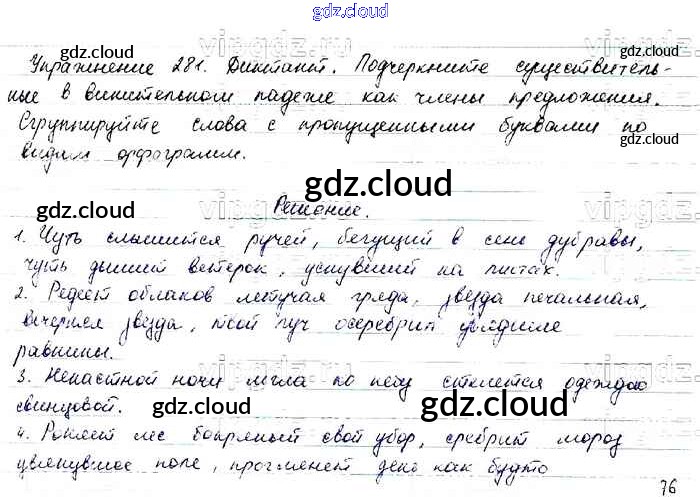 gdz.cloud
Упражнение 281. Диктант. Подчеркните существитель-
ные в винительном падеже как члены предложения.
Сгруппируйте слова с пропущенными буквами по
видам орфограмм.
Решение.
1. Чуть слышится ручей, бегущий в сень дубравы,
чуть дышит ветерок, уснувший на листах.
2. Редеет облаков летучая гряда, звезда печальная,
вечерняя звезда, твой луч осеребрил увядшие
равнины.
3. Ненастной ночи мгла по небу стелется одеждою
свинцовой.
4. Роняет лес багряный свой убор, сребрит мороз
увянувшее поле, проглянет день как будто
76